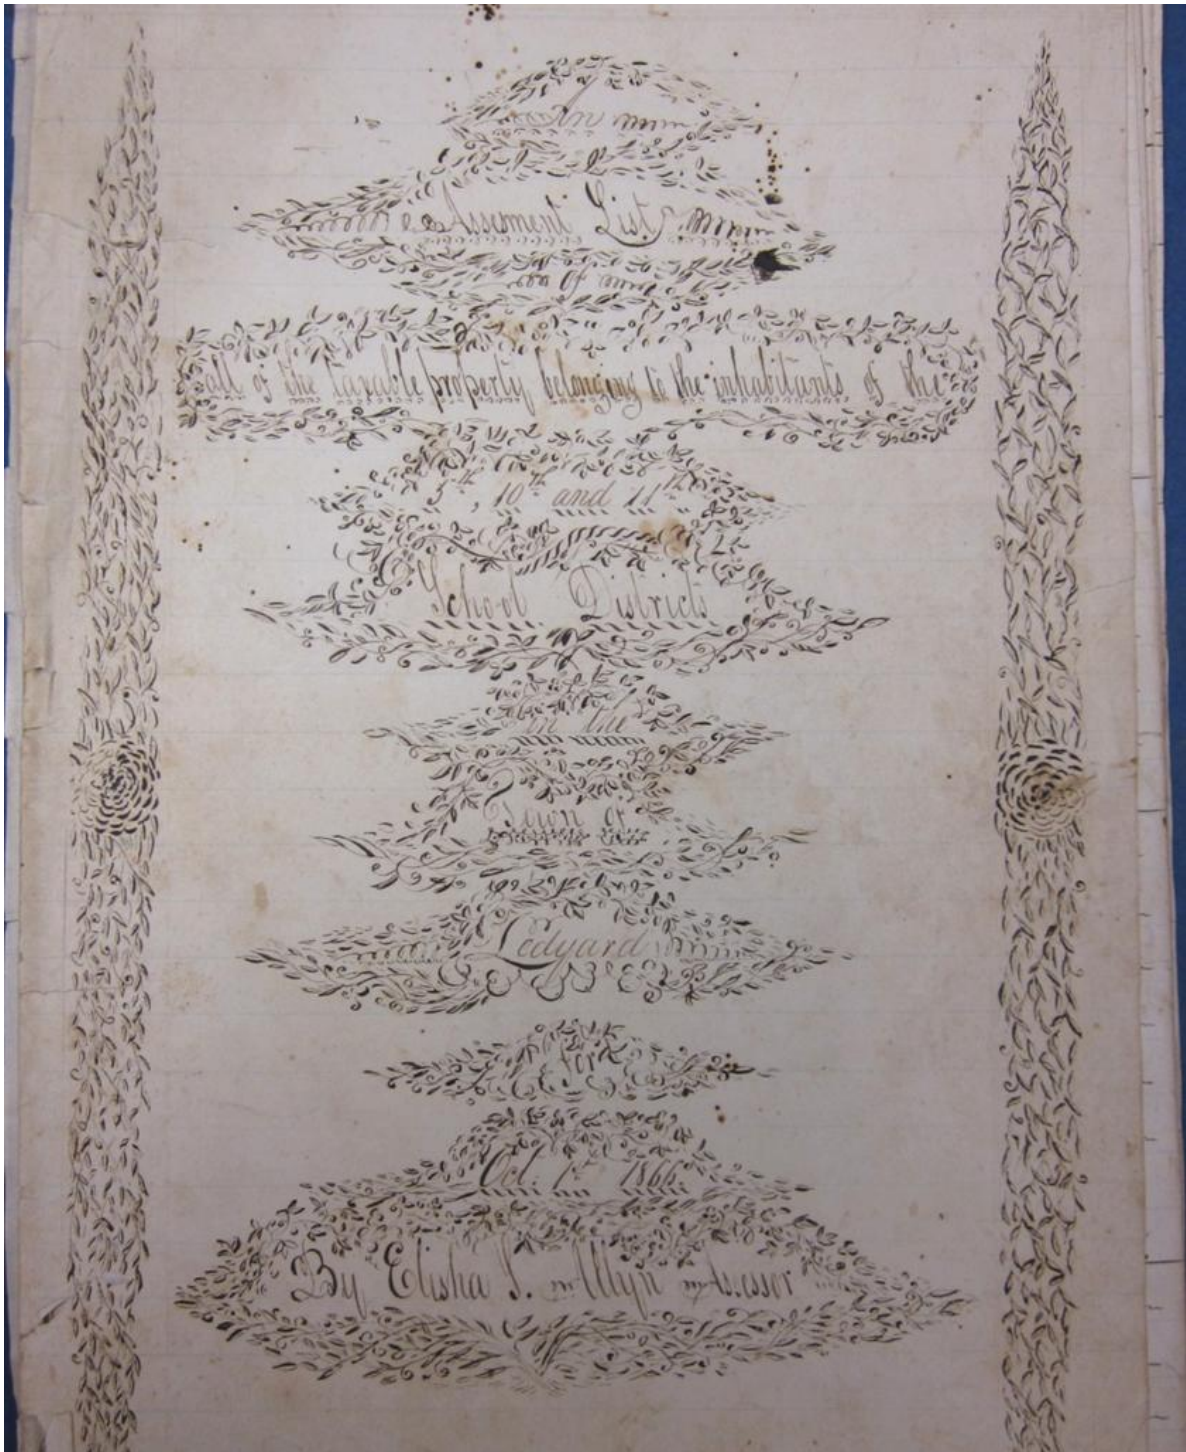 An
Assesment List
of
all of the taxable property belonging to the inhabitants of the
5th, 10th and 11th
School Districts
in the
Town of
Ledyard
for
Oct. 1st 1866.
By Elisha S. Allyn Assessor